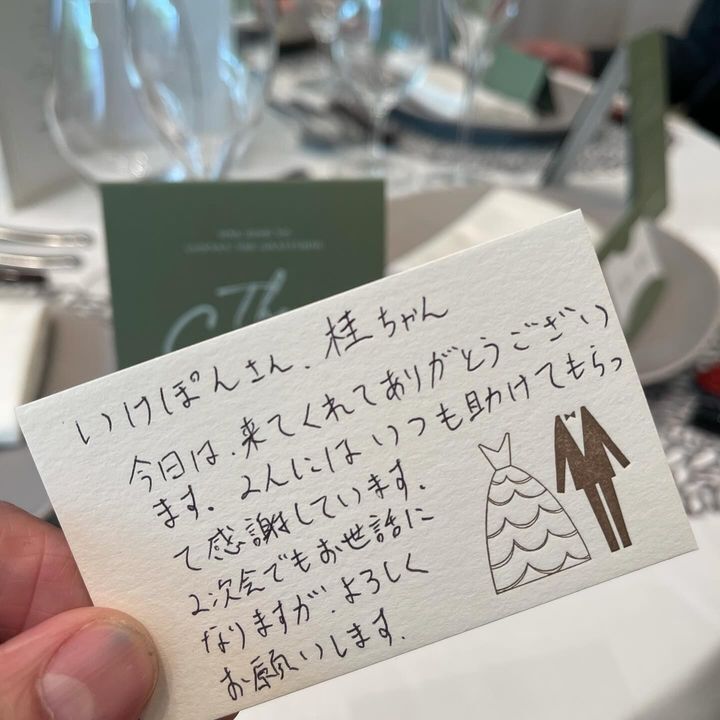 The
いけぽんさん、桂ちゃん
今日は、来てくれてありがとうござい
ます。2人にはいつも助けてもらっ
て感謝しています。
2次会でもお世話に
なりますが、よろしく
お願いします。